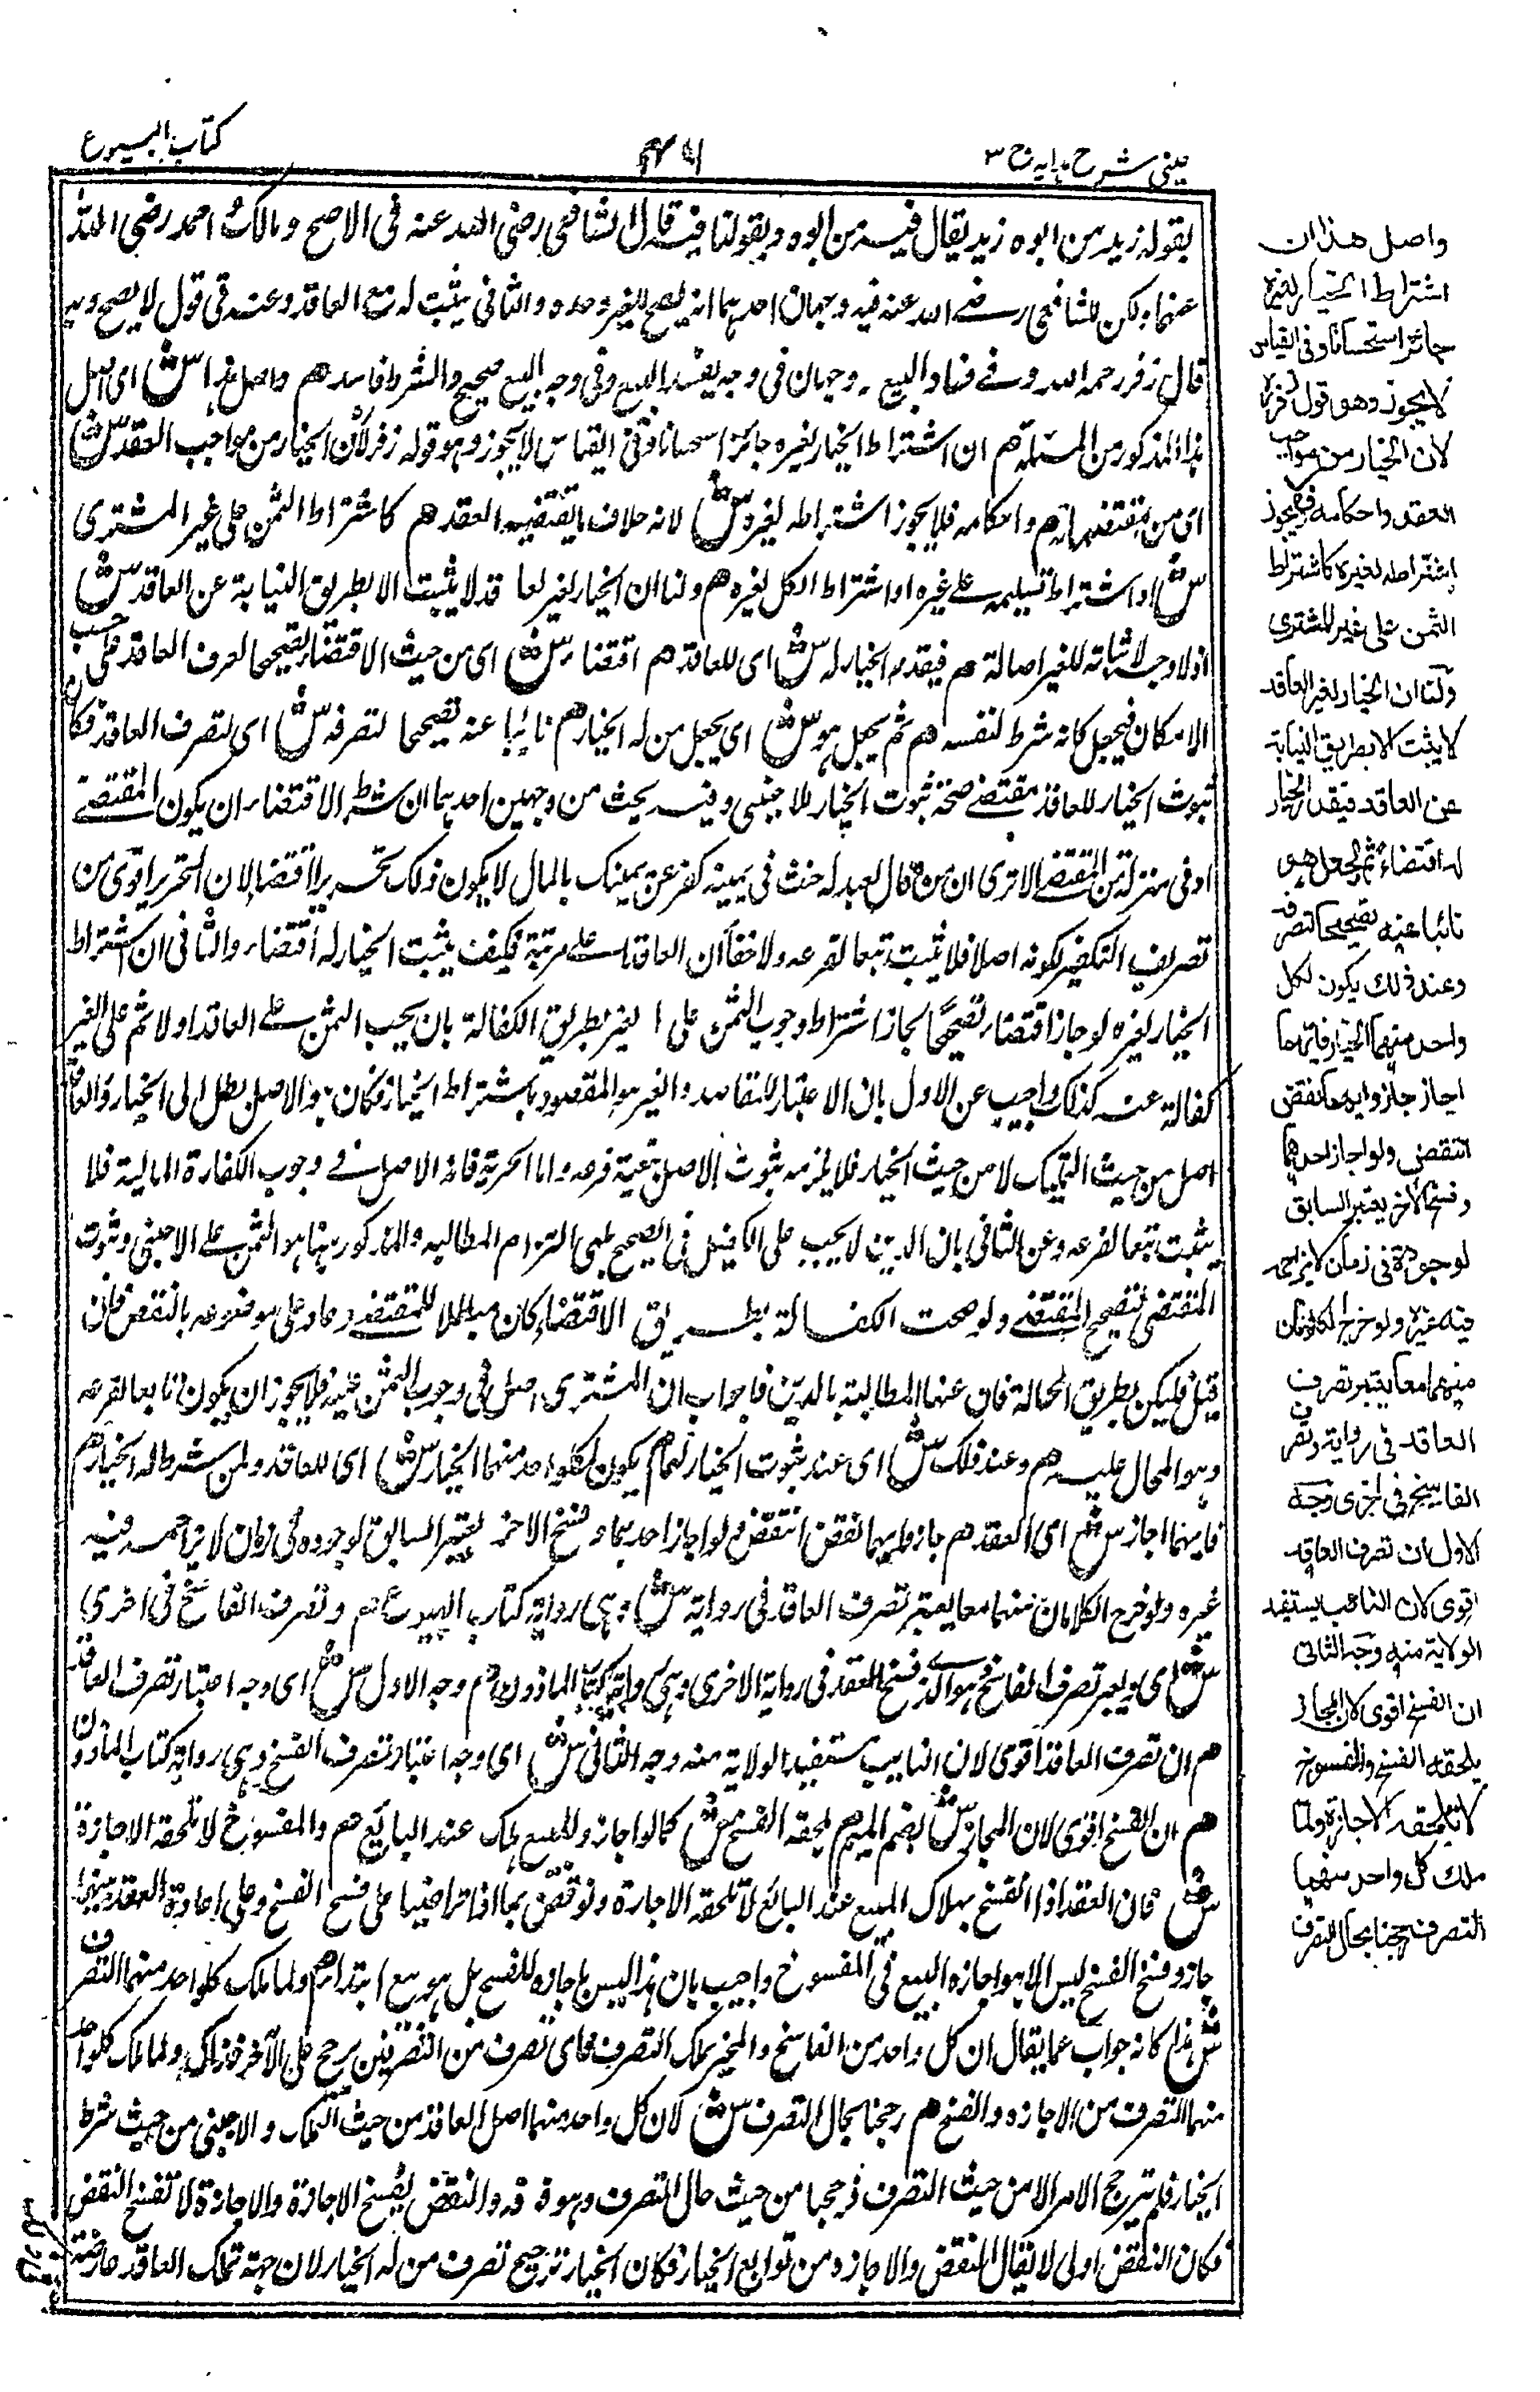 عينى شرح هدايه ج ٣
كتاب البيوع
بقوله زيد من ابوه زيد يقال فيه من ابوه وبقولنا فيه قال الشافعى رضى الله عنه فى الاصح ومالك احمد رضى الله
عنهما ولكن للشافعى رضى الله عنه فيه وجهان احدهما انه يصح للغير وحده والثانى يثبت له مع العاقد وعنه فى قول لا يصح وبه
قال زفر رحمه الله وفى فساد البيع وجهان فى وجه يفسد البيع وفى وجه البيع صحيح والشرط فاسد هم واصل هذا ش اى اصل
هذا المذكور من المسئلة هم ان اشتراط الخيار لغيره جائز استحسانا وفى القياس لا يجوز وهو قوله زفر لان الخيار من مواجب العقد ش
اى من مقتضياته هم واحكامه فلا يجوز اشتراطه لغيره ش لانه خلاف ما يقتضيه العقد هم كاشتراط الثمن على غير المشترى
ش او اشتراط تسليمه على غيره او اشتراط الكل لغيره هم ولنا ان الخيار لغير العاقد لا يثبت الا بطريق النيابة عن العاقد ش
اذ لا وجه لاثباته للغير اصالة هم فيقدم الخيار له ش اى للعاقد هم اقتضاء ش اى من حيث الاقتضاء تصحيحا لصرف العاقد على حسب
الامكان فيجعل كانه شرط لنفسه هم ثم يجعل هو ش اى يجعل من له الخيار هم نائبا عنه تصحيحا لتصرفه ش اى لتصرف العاقد فكان
ثبوت الخيار للعاقد مقتضى صحة ثبوت الخيار للاجنبى وفيه بحث من وجهين احدهما ان شرط الاقتضاء ان يكون المقتضى
ادنى منزلة من المقتضى الا ترى ان من قال لعبد له حنث فى يمينه كفر عن يمينك بالمال لا يكون ذلك تحريرا اقتضاء لان التحرير اقوى من
تصرف التكفير لكونه اصلا فلا يثبت تبعا لفرعه ولا خفأ ان العاقد اعلى مرتبة فكيف يثبت الخيار له اقتضاء والثانى ان اشتراط
الخيار لغيره لو جاز اقتضاء تصحيحا لجاز اشتراط وجوب الثمن على الغير بطريق الكفالة بان يجب الثمن على العاقد اولا ثم على الغير
كفالة عنه كذلك واجيب عن الاول بان الاعتبار للمقاصد والغير هو المقصود باشتراط الخيار فكان هو الاصل نظرا الى الخيار والعاقد
اصل من حيث التمليك لا من حيث الخيار فلا يلزمه ثبوت الاصل بتبعية فرعه واما الحرية فانه الاصل فى وجوب الكفارة المالية فلا
يثبت تبعا لفرعه وعن الثانى بان الدين لا يجب على الكفيل فى الصحيح بل هى التزام المطالبه والمذكور ههنا هو الثمن على الاجنبى وثبوت
المقتضى لتصحيح المقتضى ولو صحت الكفالة بطريق الاقتضاء كان مبطلا للمقتضى وعاد على موضوعه بالنقض فان
قيل فليكن بطريق الحوالة فان عنها المطالبة بالدين فاجواب ان المشترى اصل فى وجوب الثمن عليه فلا يجوز ان يكون تابعا لفرعه
وهو المحال عليه هم وعند ذلك ش اى عند ثبوت الخيار لهما هم يكون لكل واحد منهما الخيار ش اى للعاقد ولمن شرط له الخيار هم
فايهما اجاز ش اى العقد هم جاز وايهما نقض انتقض ولو اجاز احدهما وفسخ الاخر يعتبر السابق لوجوده فى زمان لا يزاحمه فيه
غيره ولو خرج الكلامان منهما معا يعتبر تصرف العاقد فى رواية ش وهى رواية كتاب البيوع هم وتصرف الفاسخ فى اخرى
ش اى ويعتبر تصرف الفاسخ وهو الذى فسخ العقد فى رواية الاخرى وهى رواية كتاب الماذون هم وجه الاول ش اى وجه اعتبار تصرف العاقد
هم ان تصرف العاقد اقوى لان النائب يستفيد الولاية منه وجه الثانى ش اى وجه اعتبار تصرف الفسخ وهى رواية كتاب الماذون
هم ان الفسخ اقوى لان المجاز ش بضم الميم هم يلحقه الفسخ ش كما لو اجاز والمبيع هلك عند البائع هم والمفسوخ لا تلحقه الاجازة
ش فان العقد اذا انفسخ بهلاك المبيع عند البائع لا تلحقه الاجازة ونوقض بما اذا تراضيا على فسخ الفسخ وعلى اعادة العقد بينهما
جاز وفسخ الفسخ ليس الا هو اجازه البيع فى المفسوخ واجيب بان هذا ليس باجازه للفسخ بل هو بيع ابتداء هم ولما ملك كل واحد منهما التصرف
ش هذا كانه جواب عما يقال ان كل واحد من الفاسخ والمخير يملك التصرف فاى تصرف من التصرفين يرجح على الآخر فذلك ولما ملك كل واحد
منهما التصرف من الاجازه والفسخ هم رجحنا بحال التصرف ش لان كل واحد منهما اصل العاقد من حيث التملك والاجنبى من حيث شرط
الخيار فلم يترجح الامر الا من حيث التصرف فرجحنا من حيث حال التصرف وهو والنقض يفسخ الاجازة والاجازة لا تفسخ النقض
فكان النقض اولى لا يقال النقض والاجازه من توابع الخيار فكان الخيار ترجيح تصرف من له الخيار لان جهة تملك العاقد عارضته
واصل هذا ان
اشتراط الخيار لغيره
جائز استحسانا وفى القياس
لا يجوز وهو قول زفر
لان الخيار من مواجب
العقد واحكامه فلا يجوز
اشتراطه لغيره كاشتراط
الثمن على غير المشترى
ولنا ان الخيار لغير العاقد
لا يثبت الا بطريق النيابة
عن العاقد فيقدم الخيار
له اقتضاء ثم يجعل هو
نائبا عنه تصحيحا لتصرفه
وعند ذلك يكون لكل
واحد منهما الخيار فايهما
اجاز جاز وايهما نقض
انتقض ولو اجاز احدهما
وفسخ الاخر يعتبر السابق
لوجوده فى زمان لا يزاحمه
فيه غيره ولو خرج الكلامان
منهما معا يعتبر تصرف
العاقد فى رواية وتصرف
الفاسخ فى اخرى وجه
الاول ان تصرف العاقد
اقوى لان النائب يستفيد
الولاية منه وجه الثانى
ان الفسخ اقوى لان المجاز
يلحقه الفسخ والمفسوخ
لا تلحقه الاجازة ولما
ملك كل واحد منهما
التصرف رجحنا بحال التصرف